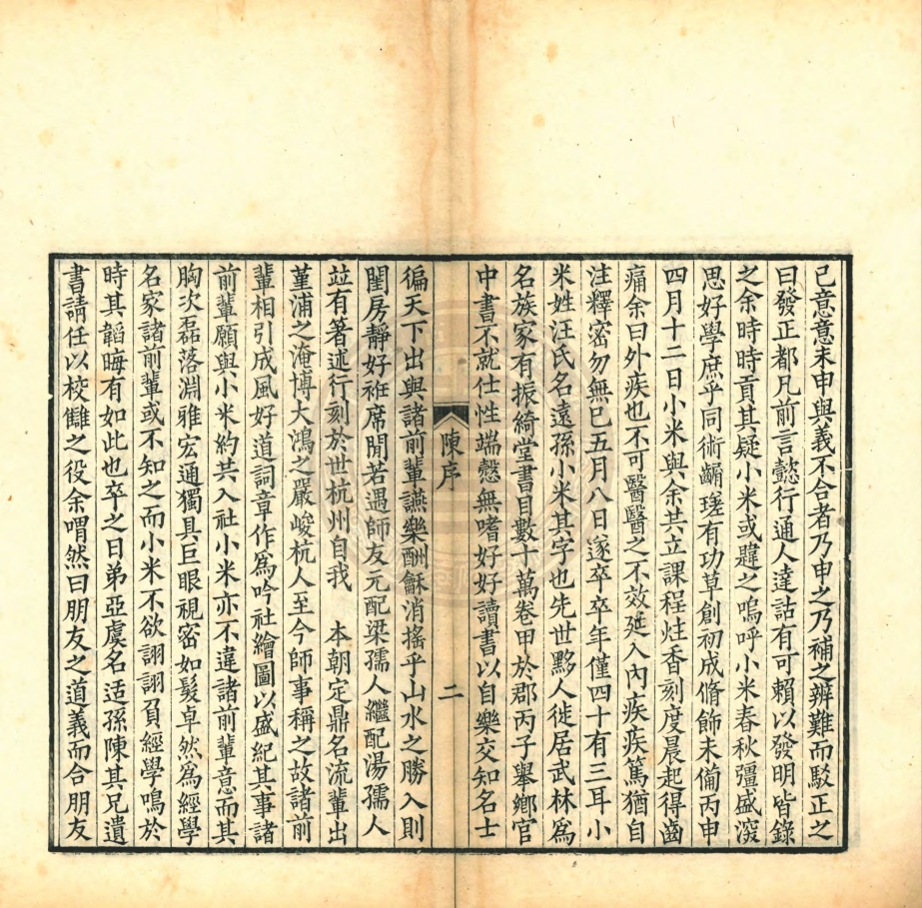 己意意未申與義不合者乃申之乃補之辨難而駁正之
曰發正都凡前言懿行通人達詁有可賴以發明皆錄
之余時時貢其疑小米或韙之嗚呼小米春秋彊盛湥
思好學庶乎同術齱瑳有功草創初成脩飾未僃丙申
四月十二日小米與余共立課程炷香刻度晨起得齒
痛余曰外疾也不可醫醫之不效延入內疾疾篤猶自
注釋密勿無已五月八日遂卒卒年僅四十有三耳小
米姓汪氏名遠孫小米其字也先世黟人徙居武林爲
名族家有振綺堂書目數十萬卷甲於郡丙子舉鄉官
中書不就仕性端慤無嗜好好讀書以自樂交知名士
陳序
二
徧天下出與諸前輩讌樂酬龢消搖乎山水之勝入則
閨房靜好袵席閒若遇師友元配梁孺人繼配湯孺人
竝有著述行刻於世杭州自我 本朝定鼎名流輩出
堇浦之淹博大鴻之嚴峻杭人至今師事稱之故諸前
輩相引成風好道詞章作爲吟社繪圖以盛紀其事諸
前輩願與小米約共入社小米亦不違諸前輩意而其
胸次磊落淵雅宏通獨具巨眼視密如髮卓然爲經學
名家諸前輩或不知之而小米不欲詡詡負經學鳴於
時其韜晦有如此也卒之日弟亞虞名适孫陳其兄遺
書請任以校讎之役余喟然曰朋友之道義而合朋友